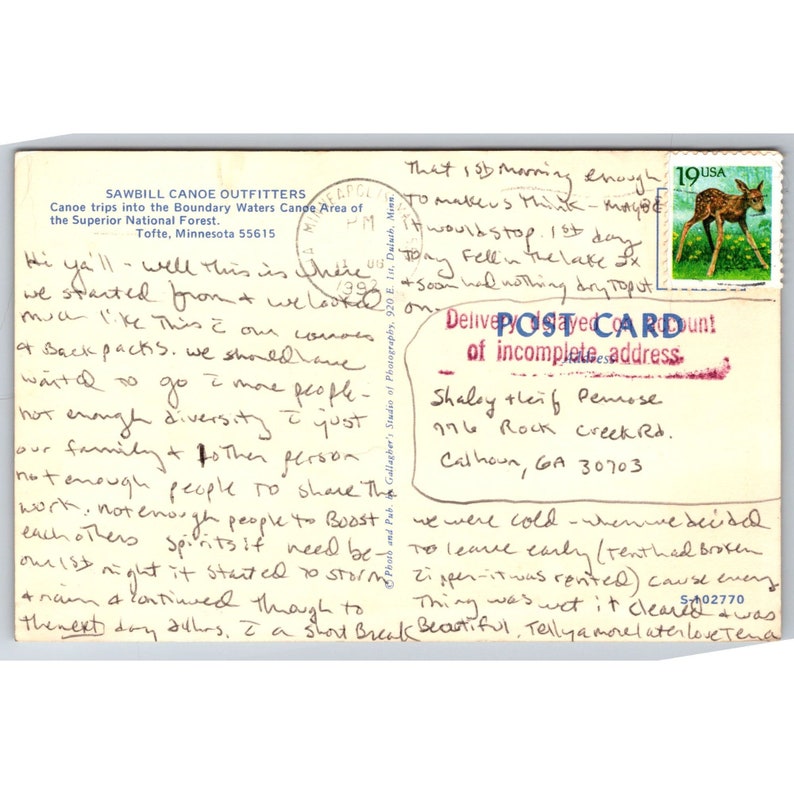 SAWBILL CANOE OUTFITTERS
Canoe trips into the Boundary Waters Canoe Area of
the Superior National Forest.
Tofte, Minnesota 55615
Hi ya'll - well this is where
we started from + we looked
much like this c̄ our canoes
+ Backpacks. we should have
waited to go c̄ more people -
not enough diversity c̄ just
our family + 1 other person
not enough people to share the
work. not enough people to Boost
each others spirits if need be -
our 1st night it started to storm
+ rain + continued through to
the next day 24hrs. c̄ a short Break
© Photo and Pub. by Gallagher's Studio of Photography, 920 E. 1st, Duluth, Minn.
MINNEAPOLIS
PM
1992
19 USA
That 1st morning enough
to make us think - maybe
it would stop. 1st day
fell in the lake 2x
+ soon had nothing dry to put
on.
POST CARD
Address
Delivery delayed on account
of incomplete address.
Shaley + Leif Penrose
776 Rock Creek Rd.
Calhoun, GA 30703
we were cold - when we decided
to leave early (tent had Broken
zipper - it was rented) cause every
thing was wet it cleared + was
Beautiful. Tell ya more later love Tena
S-102770